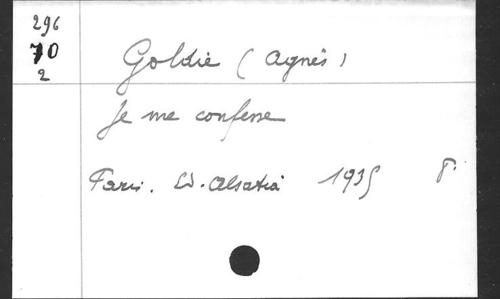 296
70
2
Goldie (Agnès)
Je me confesse
Paris. Ed. Alsatia 1935 8°